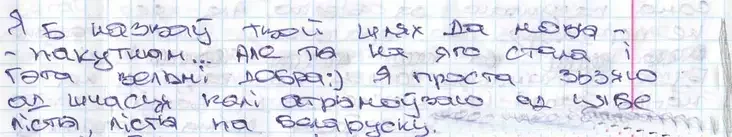 Я б назваў твой шлях да мовы -
- пакутным... Але ты на яго стала і
гэта вельмі добра:) Я проста зьзяю
ад шчасця калі атрымоўваю ад цябе
лісты, лісты па беларуску.